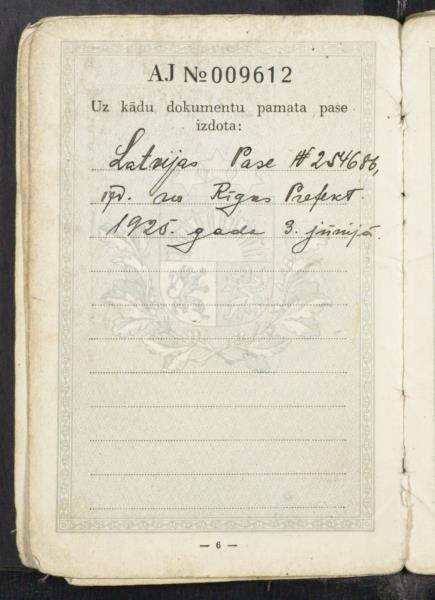 AJ № 009612
Uz kādu dokumentu pamata pase
izdota:
Latvijas Pase № 254686,
izd. no Rīgas Prefekt.
1925. gada 3. jūnijā.
— 6 —